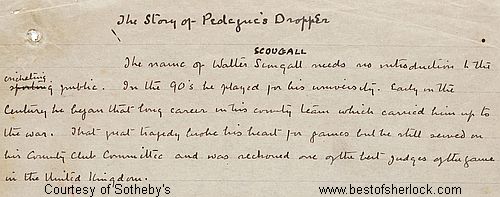 The Story of Pedegue's Dropper
SCOUGALL
The name of Walter Scougall needs no introduction to the
cricketing
sporting public. In the 90's he played for his university. Early in the
Century he began that long career in his county team which carried him up to
the war. That great tragedy broke his heart for games but he still served on
his County Club Committee and was reckoned one of the best judges of the game
in the United Kingdom.
Courtesy of Sotheby's
www.bestofsherlock.com